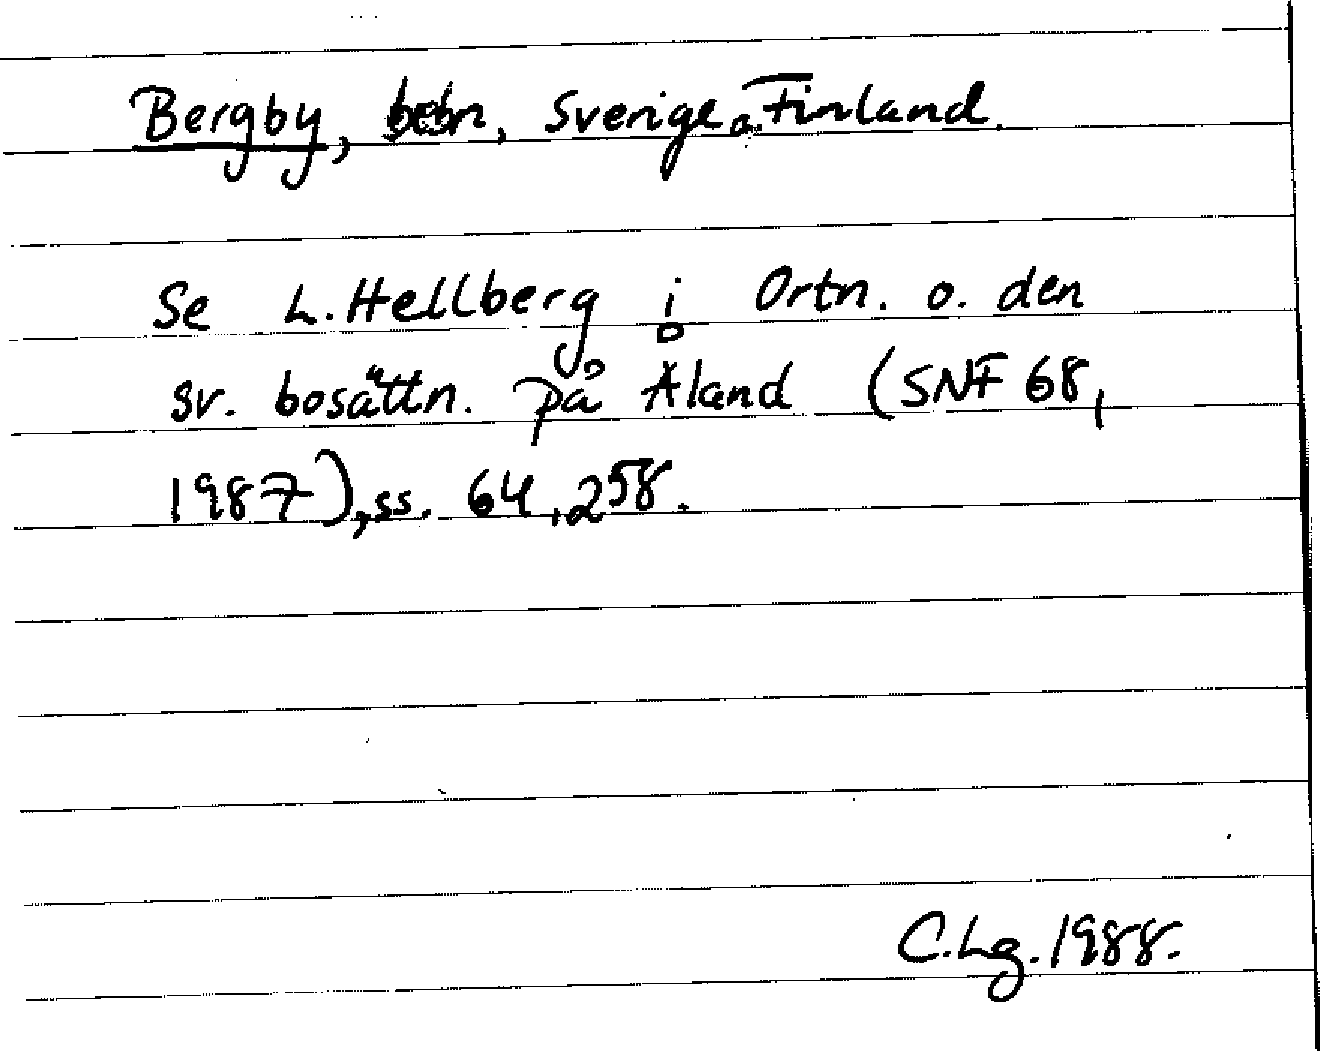 Bergby, bebn, Sverige o. Finland.
Se L. Hellberg i Ortn. o. den
sv. bosättn. på Åland (SNF 68,
1987), ss. 64, 258.
C.Lg. 1988.